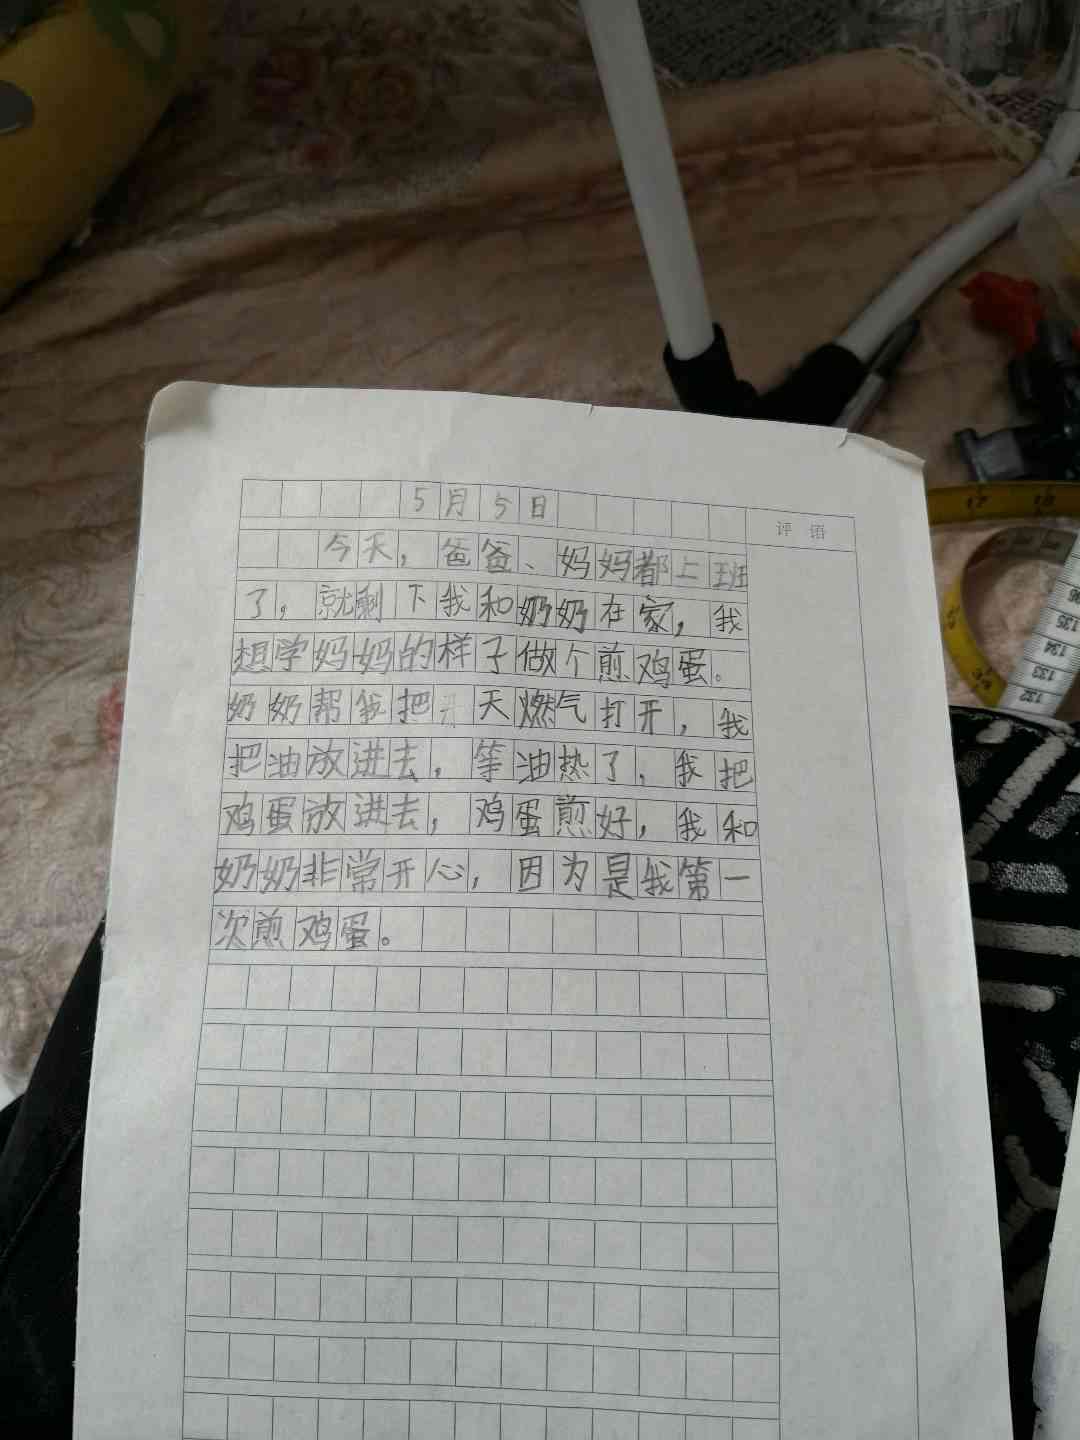 5月5日
评语
今天，爸爸、妈妈都上班
了，就剩下我和奶奶在家，我
想学妈妈的样子做个煎鸡蛋。
奶奶帮我把天燃气打开，我
把油放进去，等油热了，我把
鸡蛋放进去，鸡蛋煎好，我和
奶奶非常开心，因为是我第一
次煎鸡蛋。
135
134
133
132